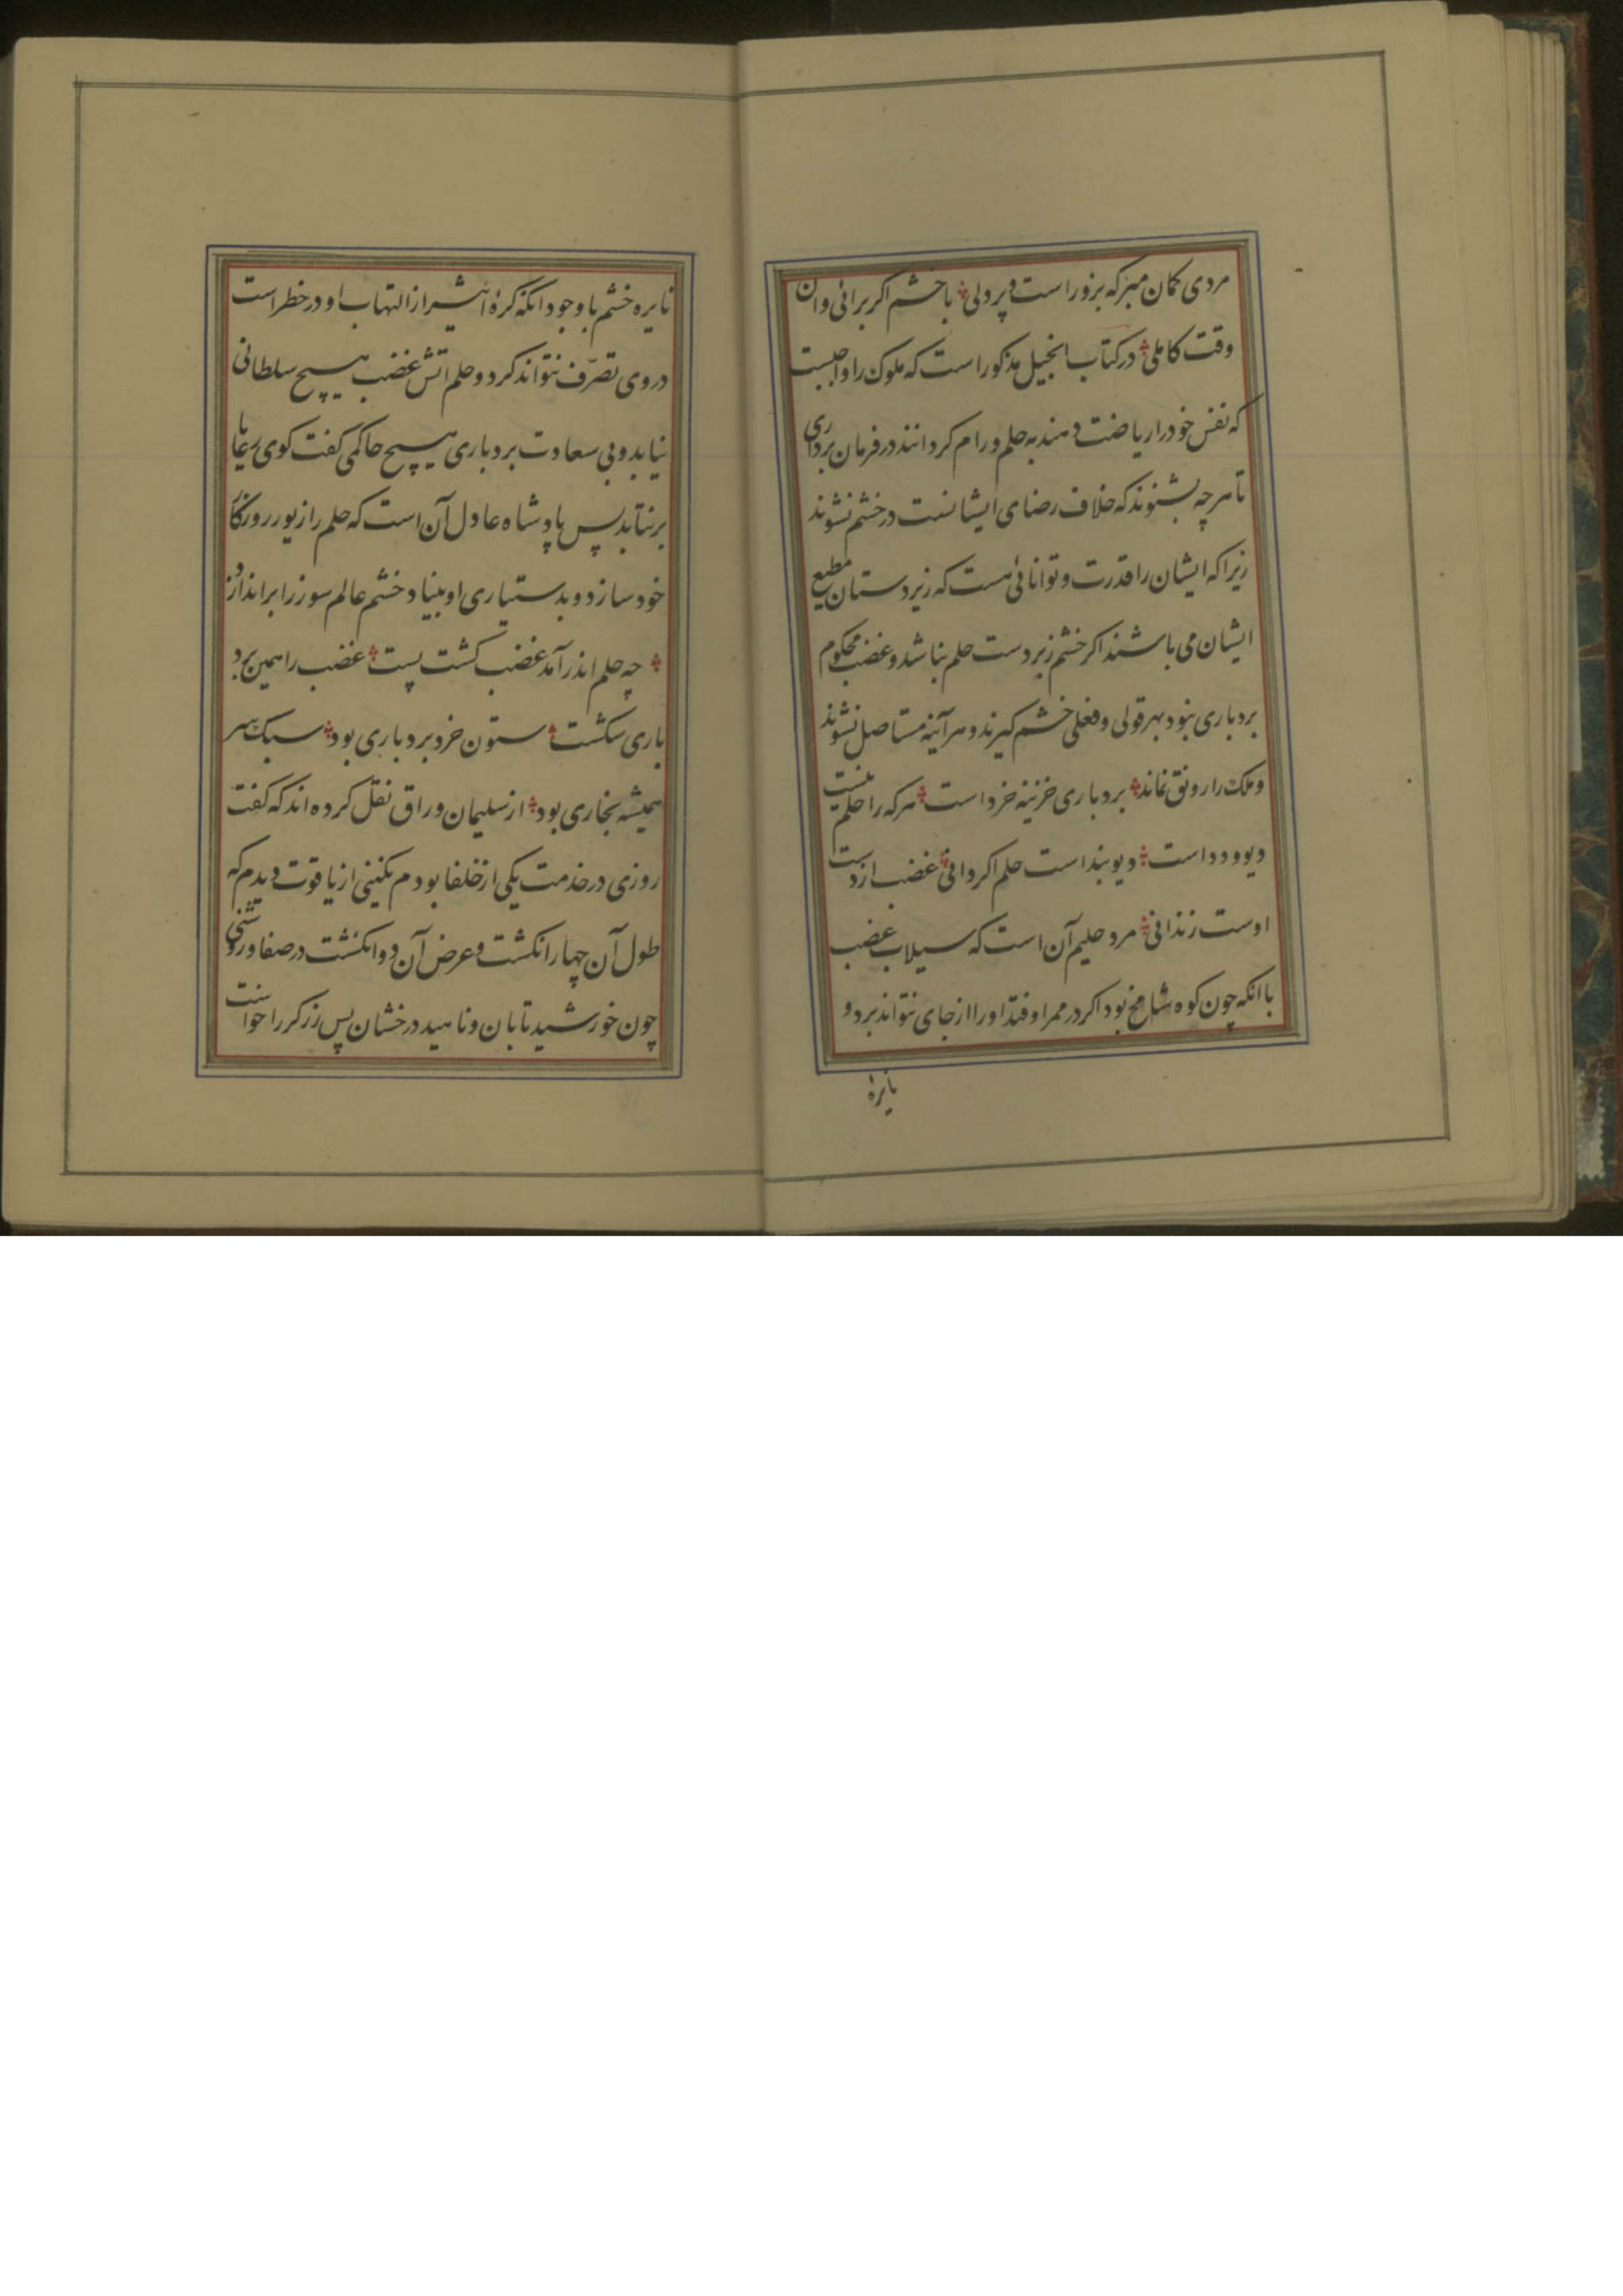 مردی گمان مبر که بزور است و پردلی با خشم اگر برائی دان
وقت کاملی در کتاب انجیل مذکور است که ملوک را واجبست
که نفس خود را ریاضت دهند به حلم و رام کردانند در فرمان برداری
تا هرچه بشنوند که خلاف رضای ایشانست در خشم نشوند
زیرا که ایشان را قدرت و توانائی هست که زیردستان مطیع
ایشان می باشند اکر خشم زیردست حلم نباشد و غضب محکوم
بردباری نبود بهر قولی و فعلی خشم کیرند و هر آینه مستاصل نشوند
و ملک را رونق نماند بردباری خزینه خرد است هر که را حلم نیست
دیو و دد است دیو بند است حلم اکر دانی غضب از دست
اوست زندانی مرد حلیم آن است که سیلاب غضب
با انکه چون کوه شامخ بود اکر در ممر او فتد او را از جای نتواند برد و
نایره
نایره خشم با وجود انکه کره اثیر از التهاب او در خطر است
در وی تصرّف نتواند کرد و حلم اتش غضب هیچ سلطانی
نیابد و بی سعادت بردباری هیچ حاکمی کفت کوی رعایا
برنتابد پس پادشاه عادل آن است که حلم را زیور روزکار
خود سازد و بدستیاری او بنیاد خشم عالم سوز را براندازد
چه حلم اندر آمد غضب کشت پست غضب را همین برد
باری شکست ستون خرد بردباری بود سبک سر
همیشه بخاری بود از سلیمان وراق نقل کرده اند که کفت
روزی در خدمت یکی از خلفا بودم نکینی از یاقوت دیدم که
طول آن چهار انکشت و عرض آن دو انکشت در صفا و روشنی
چون خورشید تابان و ناهید درخشان پس زرکر را خواست